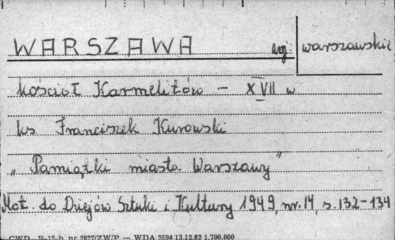 WARSZAWA woj: warszawskie
kościół Karmelitów - XVII w
ks Franciszek Kurowski
„Pamiątki miasta Warszawy"
Mat. do Dziejów Sztuki i Kultury 1949, nr. 14, s. 132-134
CWD - R-15-b nr 2827/ZW/P — WDA 2694 13.12.62 1.700.000